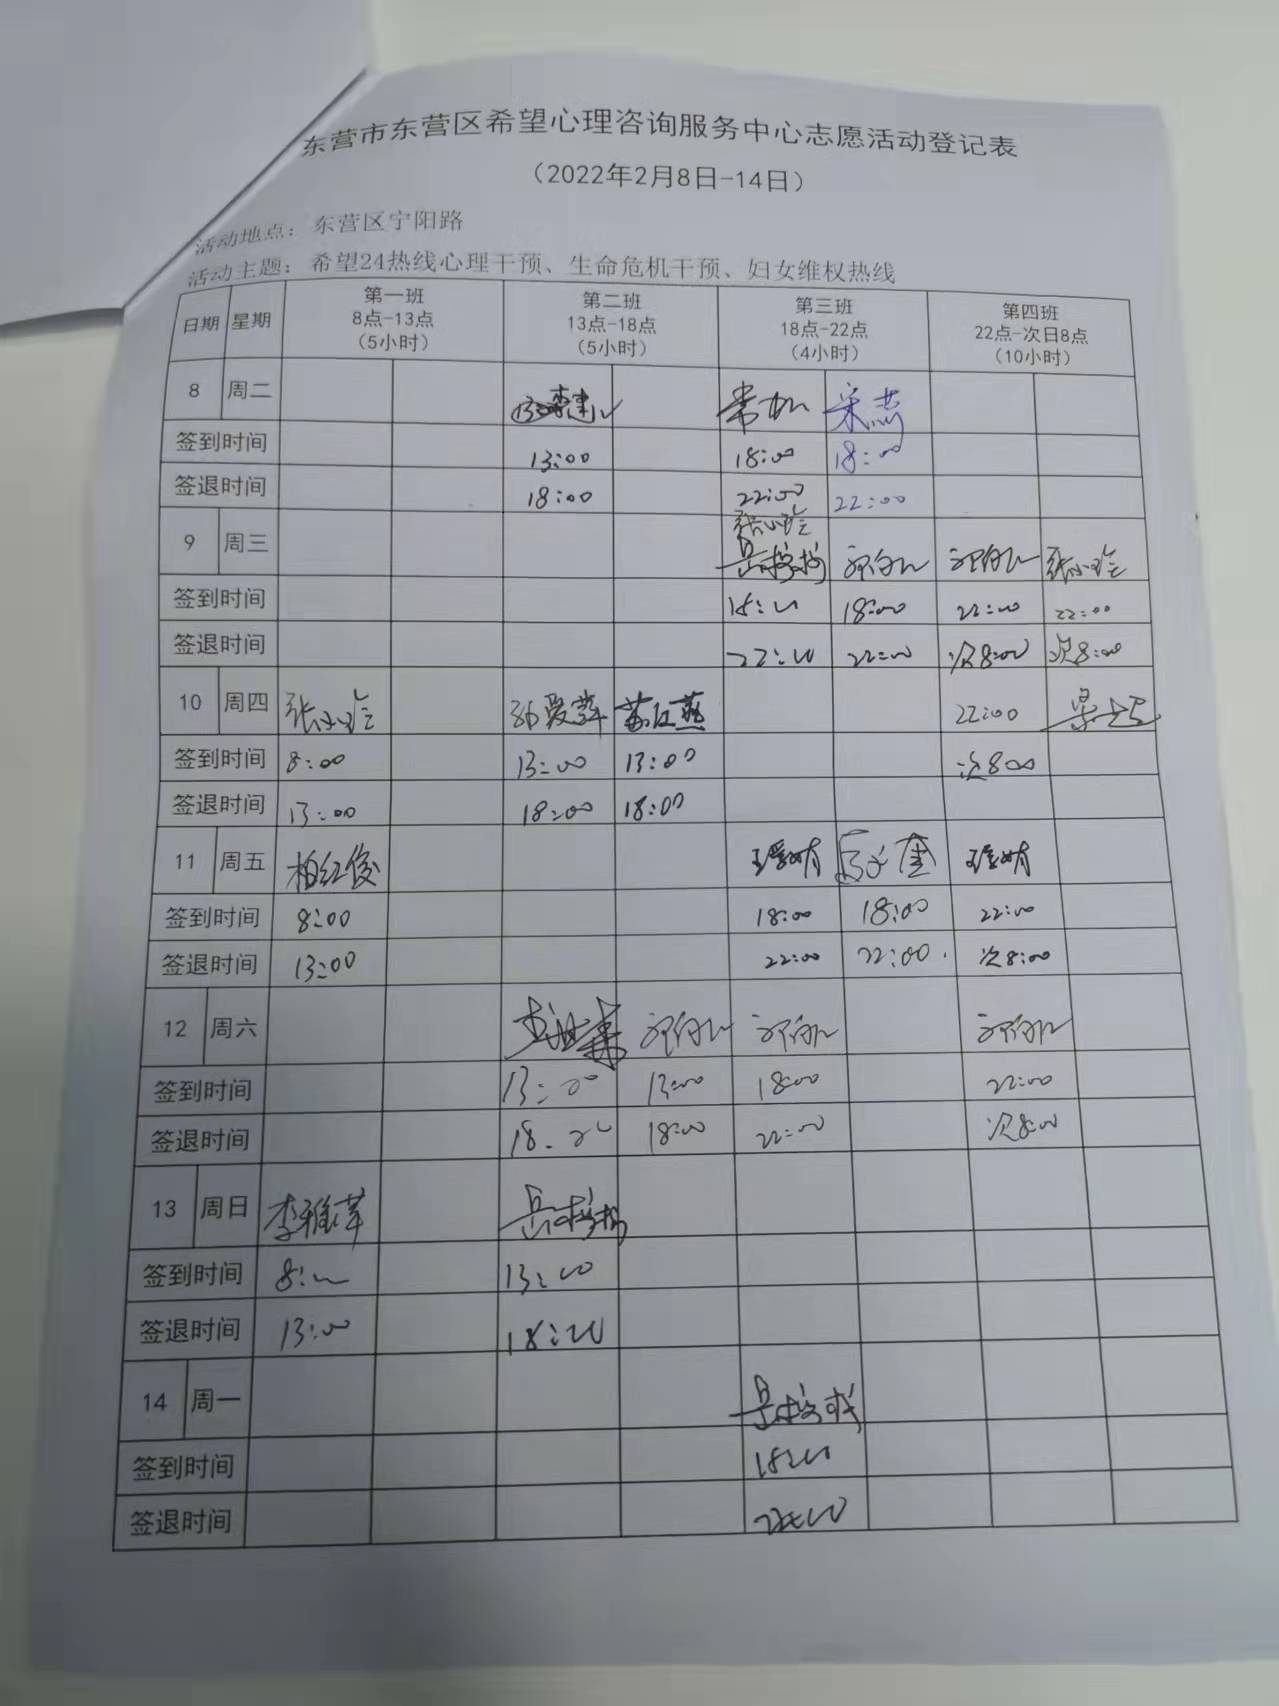 东营市东营区希望心理咨询服务中心志愿活动登记表
（2022年2月8日-14日）
活动地点：东营区宁阳路
活动主题：希望24热线心理干预、生命危机干预、妇女维权热线
日期 星期 第一班 8点-13点 （5小时） 第二班 13点-18点 （5小时） 第三班 18点-22点 （4小时） 第四班 22点-次日8点 （10小时）
8 周二
签到时间 13:00 18:00 18:00
签退时间 18:00 22:00 22:00
9 周三 张小玲 张小玲
签到时间 18:00 18:00 22:00 22:00
签退时间 22:00 22:00 次8:00 次8:00
10 周四 张小玲 孙爱萍 22:00
签到时间 8:00 13:00 13:00 次8:00
签退时间 13:00 18:00 18:00
11 周五 柏红俊
签到时间 8:00 18:00 18:00 22:00
签退时间 13:00 22:00 22:00. 次8:00
12 周六
签到时间 13:00 13:00 18:00 22:00
签退时间 18:00 18:00 22:00 次8:00
13 周日 李雅萍
签到时间 8:00 13:00
签退时间 13:00 18:00
14 周一
签到时间 18:00
签退时间 22:00